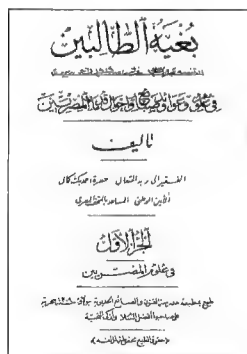 بغية الطالبين
في علوم وعوائد وصنائع وأحوال قدماء المصريين
تأليف
الفقير إلى ربه المتعال حضرة احمد بك كمال
الأمين الوطني المساعد بالمتحف المصري
الجزء الأول
في علوم المصريين
طبع بمطبعة مدرسة الفنون والصنائع الخديوية ببولاق سنة هجرية
على صاحبها أفضل السلام وأزكى التحية
(حقوق الطبع محفوظة لمؤلفه)